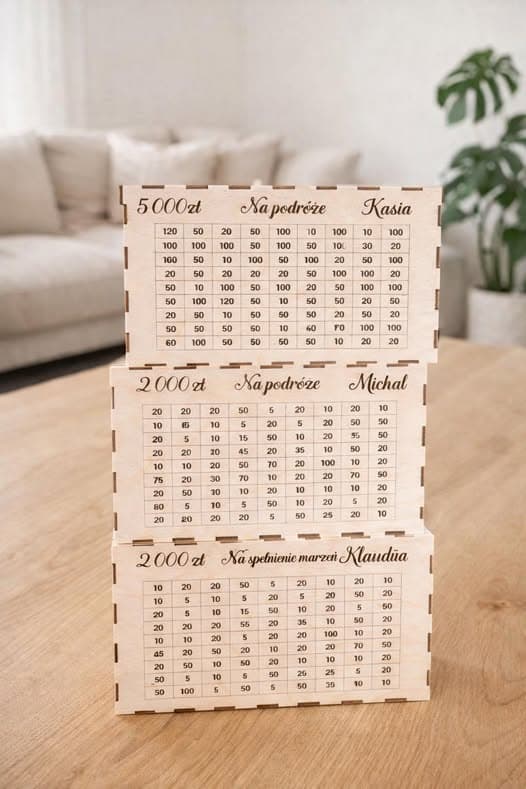 5 000zł Na podróże Kasia
120 50 20 50 100 10 100 10 100
100 100 100 50 100 50 30 20
50 10 100 50 100 20 50 100
20 50 20 20 20 50 100 100 20
50 10 50 100 20 50 100 50
50 100 120 50 10 50 50 20 50
20 50 10 50 50 50 20 50 20
50 50 50 50 10 100 100
60 100 100 50 50 50 10 20 20
2 000 zł Na podróże Michał
20 20 20 50 5 20 10 20 10
10 10 5 20 5 20 50 50
20 5 10 15 50 10 20 50
20 20 20 45 20 35 10 50 20
10 10 20 50 70 20 100 10 20
75 20 30 70 10 20 20 20 20
20 50 10 10 20 10 10 10 5
80 5 10 5 20 50 5 20 50
20 20 20 5 50 20 10
2 000 zł Na spełnienie marzeń Klaudiia
10 20 20 50 5 20 10 20 10
10 5 10 5 20 5 20 50
20 5 10 15 50 10 5 20 50
20 20 20 55 20 35 10 50 20
10 10 20 5 20 20 100 10 20
45 20 50 50 10 20 20 70 50
20 50 10 20 20 10 10 10 20
50 5 10 5 50 25 5 20
50 100 5 50 5 50 10